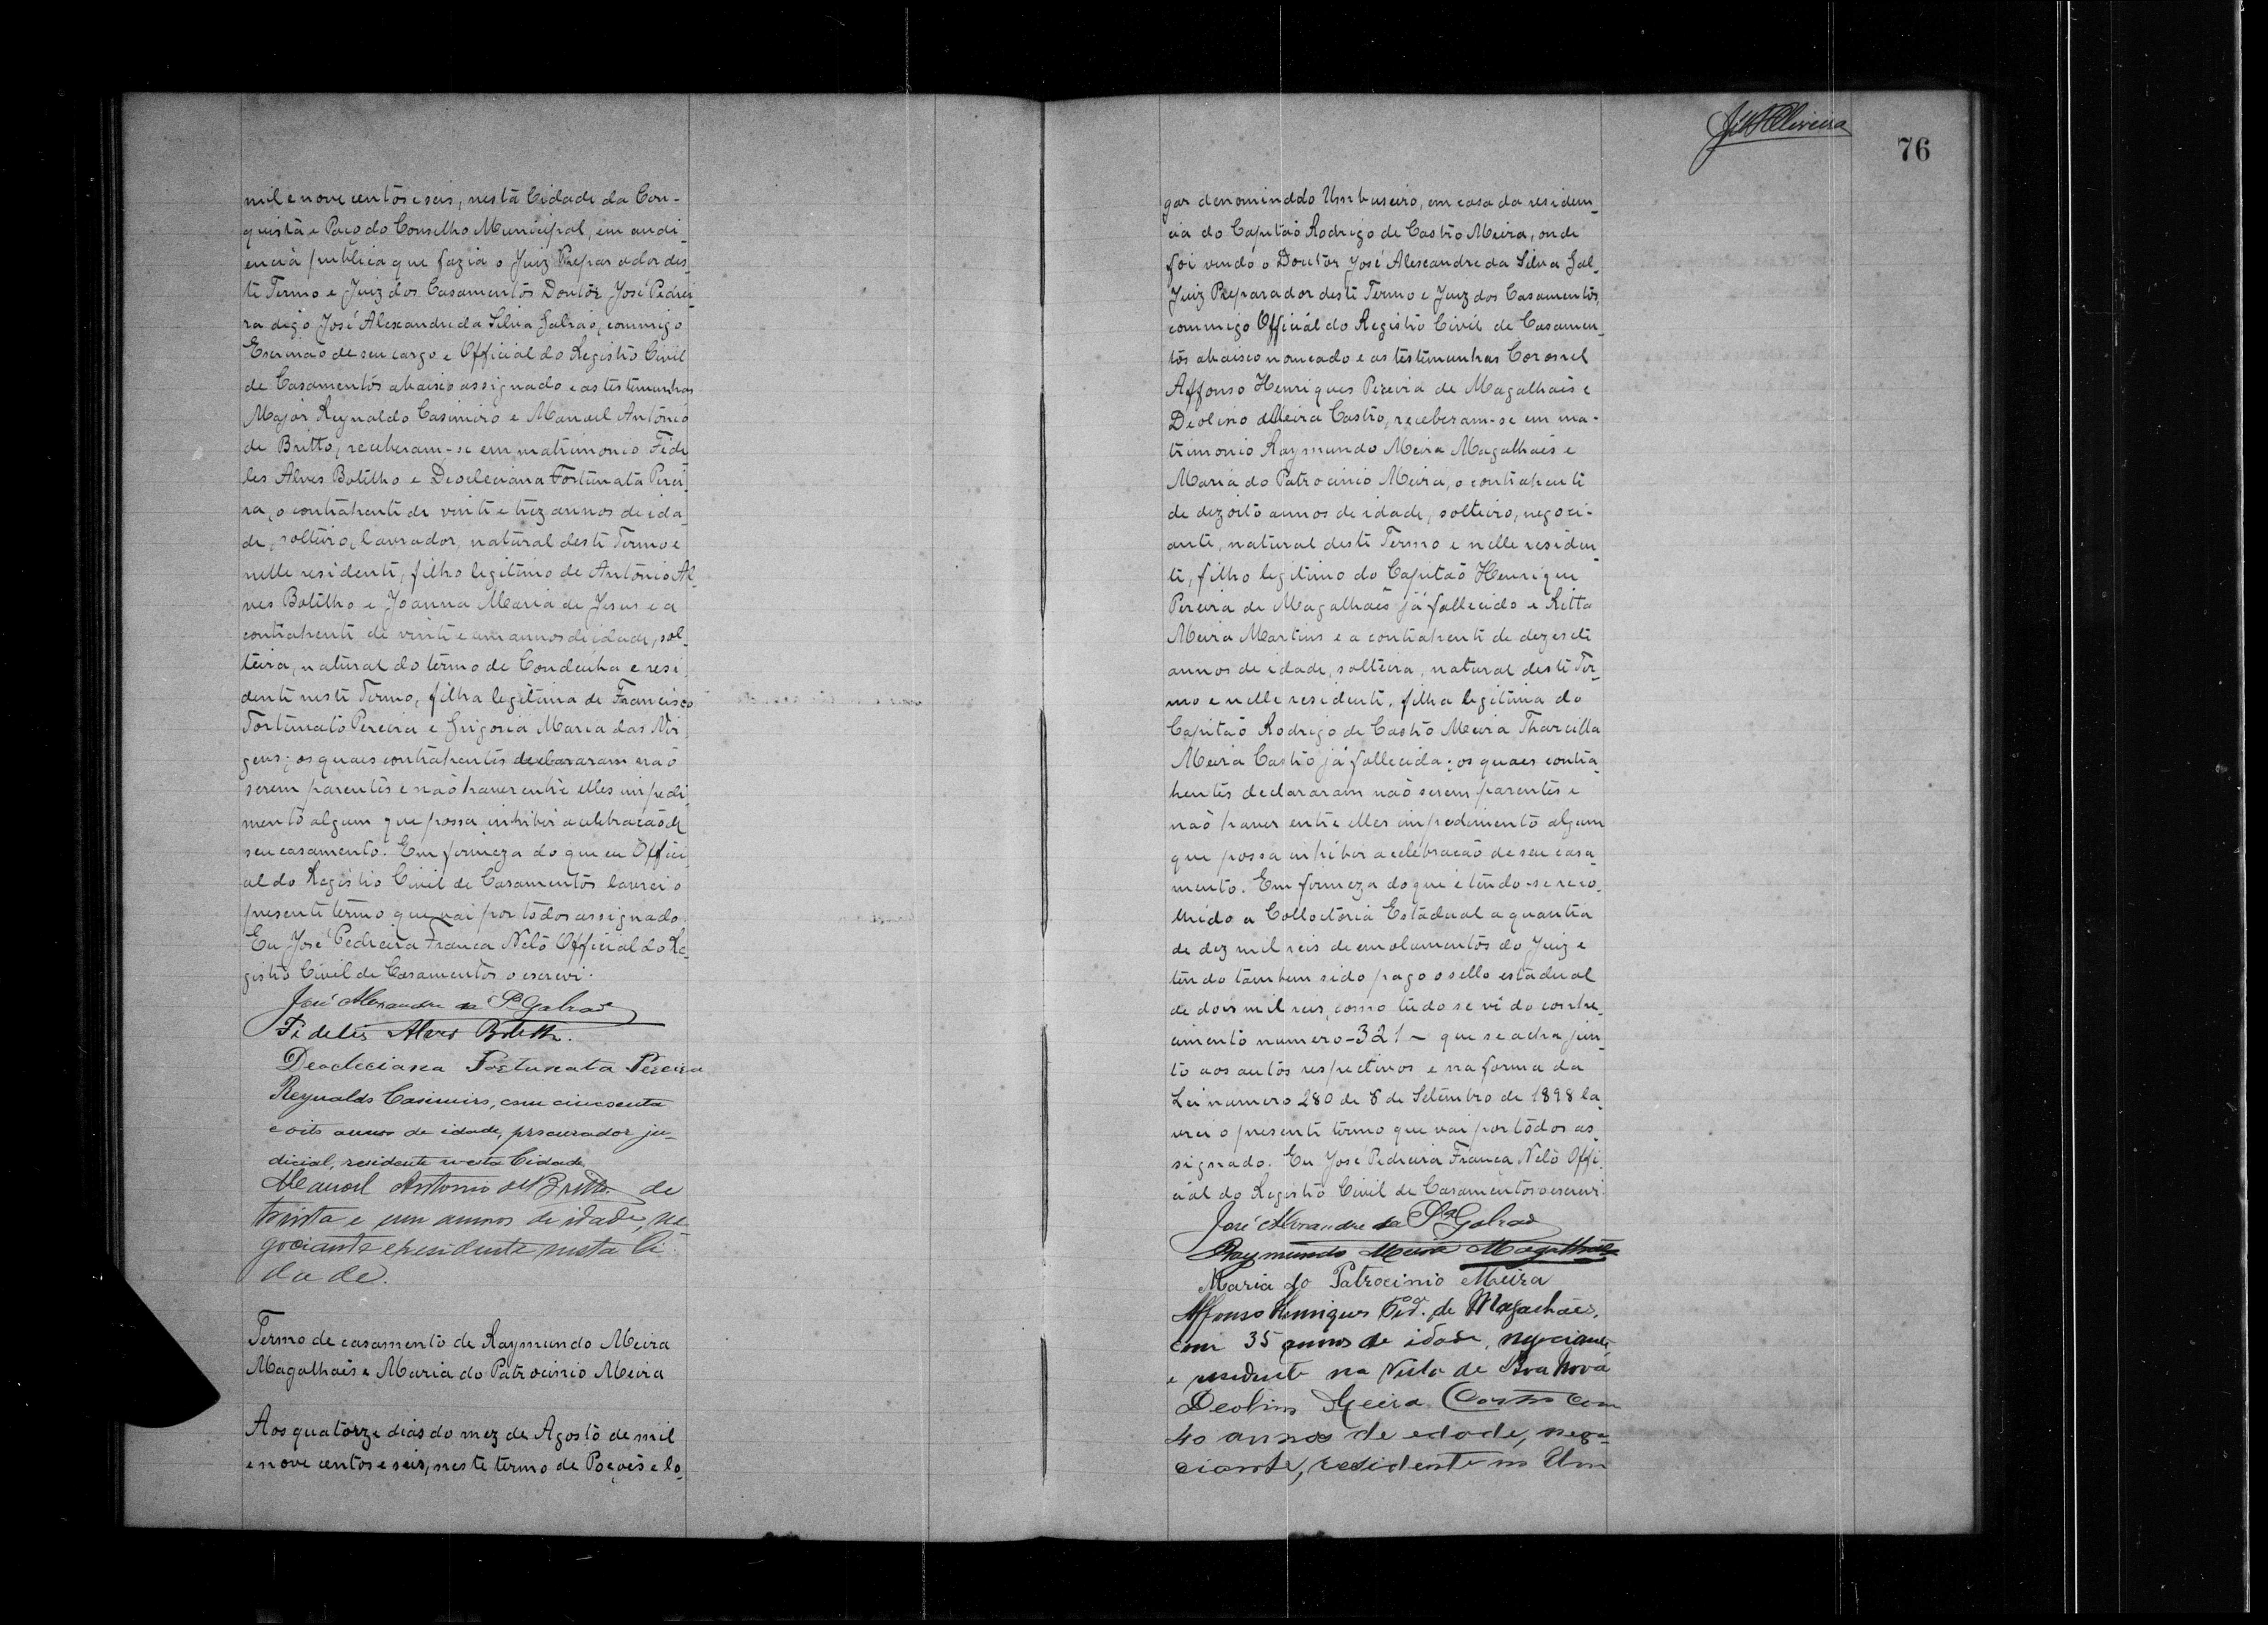 mil e nove centos e seis, nesta Cidade da Con-
quista e Paço do Conselho Municipal, em audi-
encia publica que fazia o Juiz Preparador des-
te Termo e Juiz dos Casamentos Doutor José Pedrei-
ra digo José Alexandre da Silva Galrão, commigo
Escrivão de seu cargo e Official do Registro Civil
de Casamentos abaixo assignado e as testemunhas
Major Reynaldo Casimiro e Manoel Antonio
de Britto, receberam-se em matrimonio Fide
les Alves Botelho e Deocleciana Fortunata Perei-
ra, o contrahente de vinte e trez annos de ida-
de, solteiro, lavrador, natural deste Termo e
nelle residente, filho legitimo de Antonio Al-
ves Botelho e Joanna Maria de Jesus e a
contrahente de vinte e um annos de idade, sol-
teira, natural do termo de Condeuba e resi-
dente neste Termo, filha legitima de Francisco
Fortunato Pereira e Grigoria Maria das Vir
gens; os quaes contrahentes declararam não
serem parentes e não haver entre elles impedi-
mento algum que possa inhibir a celebração de
seu casamento. Em firmeza do que eu Offici-
al do Registro Civil de Casamentos lavrei o
presente termo que vai por todos assignado.
Eu José Pedreira França Netô Official do Re-
gistro Civil de Casamentos o escrevi.
José Alexandre da Sa Galrão
Fidelis Alves Botelh.
Deocleciana Fortunata Pereira
Reynaldo Casimiro, com cincoenta
e oito annos de idade, procurador ju-
dicial, residente nesta Cidade
Manoel Antonio de Britto de
trinta e um annos de idade, ne-
gociante e residente nesta Ci-
dade.
Termo de casamento de Raymundo Meira
Magalhães e Maria do Patrocinio Meira
Aos quatorze dias do mez de Agosto de mil
e nove centos e seis, neste termo de Poções e lo-
JMOliveira
76
gar denominado Umbuseiro, em casa da residen-
cia do Capitão Rodrigo de Castro Meira, onde
foi vindo o Doutor José Alexandre da Silva Gal-
Juiz Preparador deste Termo e Juiz dos Casamentos,
commigo Official do Registro Civil de Casamen-
tos abaixo nomeado e as testemunhas Coronel
Affonso Henriques Pereira de Magalhães e
Deolino Meira Castro, receberam-se em ma-
trimonio Raymundo Meira Magalhães e
Maria do Patrocinio Meira, o contrahente
de dezoito annos de idade, solteiro, negoci-
ante, natural deste Termo e nelle residen-
te, filho legitimo do Capitão Henrique
Pereira de Magalhães já fallecido e Ritta
Meira Martins e a contrahente de dezesete
annos de idade, solteira, natural deste Ter-
mo e nelle residente, filha legitima do
Capitão Rodrigo de Castro Meira Tharcilla
Meira Castro já fallecida; os quaes contra-
hentes declararam não serem parentes e
não haver entre elles impedimento algum
que possa inhibir a celebração de seu casa-
mento. Em firmeza do que e tendo-se reco-
lhido a Collectoria Estadual a quantia
de dez mil reis de emolumentos do Juiz e
tendo tambem sido pago o sello estadual
de dois mil reis, como tudo se vê do conhe-
cimento numero-321- que se acha jun-
to aos autos respectivos e na forma da
Lei numero 280 de 6 de Setembro de 1898 la-
vrei o presente termo que vai por todos as-
signado. Eu José Pedreira França Netô Offi-
cial do Registro Civil de Casamentos o escrevi.
José Alexandre da Sa Galrão
Raymundo Meira Magalhães
Maria do Patrocinio Meira
Affonso Henriques de Magalhães,
com 35 annos de idade, negociante
e residente na Villa de Boa Nova
Deolino Meira Castro com
40 annos de edade, nego-
ciante, residente no Um